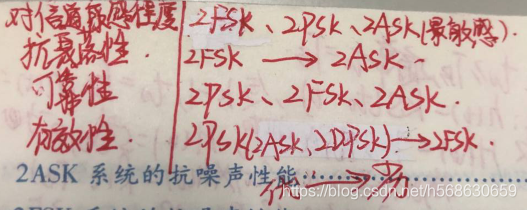 对信道敏感程度 2FSK、2PSK、2ASK(最敏感).
抗衰落性. 2FSK → 2ASK.
可靠性 2PSK、2FSK、2ASK.
有效性. 2PSK(2ASK、2DPSK) → 2FSK.
2ASK 系统的抗噪声性能
优 → 劣
https://blog.csdn.net/h568630659